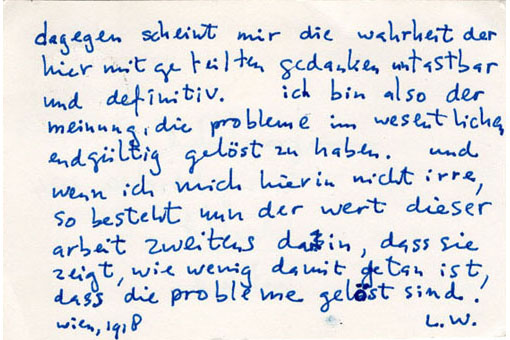 dagegen scheint mir die wahrheit der
hier mitgeteilten gedanken untastbar
und definitiv. ich bin also der
meinung, die probleme im wesentlichen
endgültig gelöst zu haben. und
wenn ich mich hierin nicht irre,
so besteht nun der wert dieser
arbeit zweitens darin, dass sie
zeigt, wie wenig damit getan ist,
dass die probleme gelöst sind.
wien, 1918 L.W.